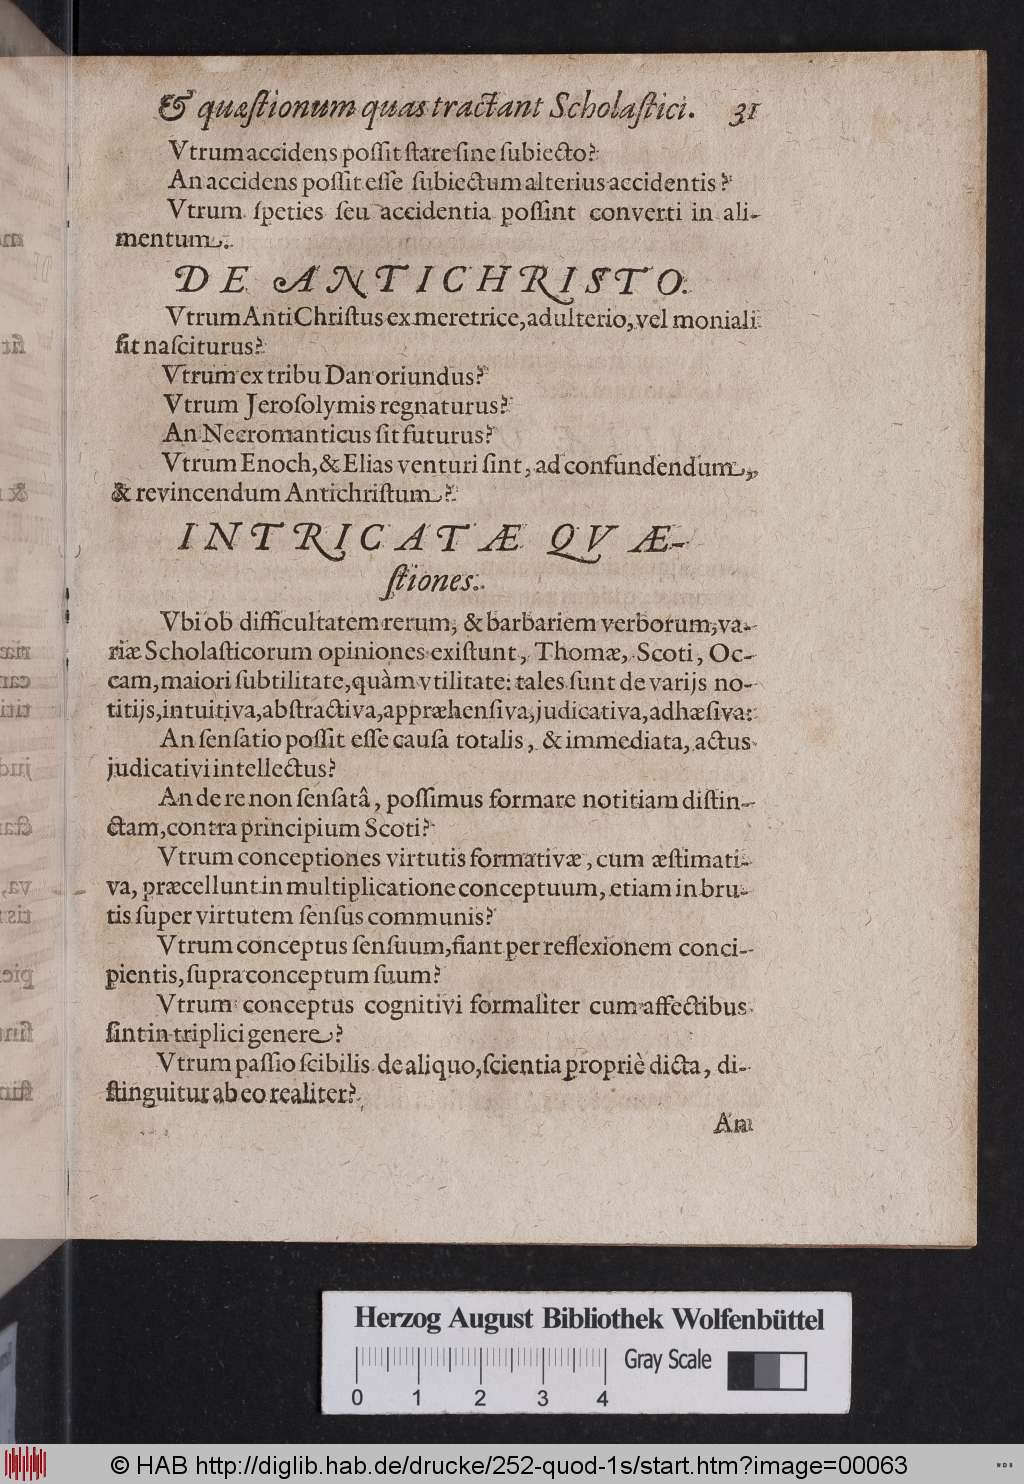 & quæſtionum quas tractant Scholaſtici. 31
Vtrum accidens poſſit ſtare ſine ſubiecto?
An accidens poſſit eſſe ſubiectum alterius accidentis?
Vtrum ſpeties ſeu accidentia poſſint converti in ali-
mentum.
DE ANTICHRISTO.
Vtrum AntiChriſtus ex meretrice, adulterio, vel moniali
ſit naſciturus?
Vtrum ex tribu Dan oriundus?
Vtrum Jeroſolymis regnaturus?
An Necromanticus ſit futurus?
Vtrum Enoch, & Elias venturi ſint, ad confundendum,
& revincendum Antichriſtum?
INTRICATÆ QVÆ-
ſtiones.
Vbi ob difficultatem rerum, & barbariem verborum, va-
riæ Scholaſticorum opiniones exiſtunt, Thomæ, Scoti, Oc-
cam, maiori ſubtilitate, quàm vtilitate: tales ſunt de varijs no-
titijs, intuitiva, abſtractiva, appræhenſiva, judicativa, adhæſiva:
An ſenſatio poſſit eſſe cauſa totalis, & immediata, actus
judicativi intellectus?
An de re non ſenſatâ, poſſimus formare notitiam diſtin-
ctam, contra principium Scoti?
Vtrum conceptiones virtutis formativæ, cum æſtimati-
va, præcellunt in multiplicatione conceptuum, etiam in bru-
tis ſuper virtutem ſenſus communis?
Vtrum conceptus ſenſuum, fiant per reflexionem conci-
pientis, ſupra conceptum ſuum?
Vtrum conceptus cognitivi formaliter cum affectibus
ſint in triplici genere?
Vtrum paſſio ſcibilis de aliquo, ſcientia propriè dicta, di-
ſtinguitur ab eo realiter?
An
Herzog August Bibliothek Wolfenbüttel
Gray Scale
0 1 2 3 4
© HAB http://diglib.hab.de/drucke/252-quod-1s/start.htm?image=00063